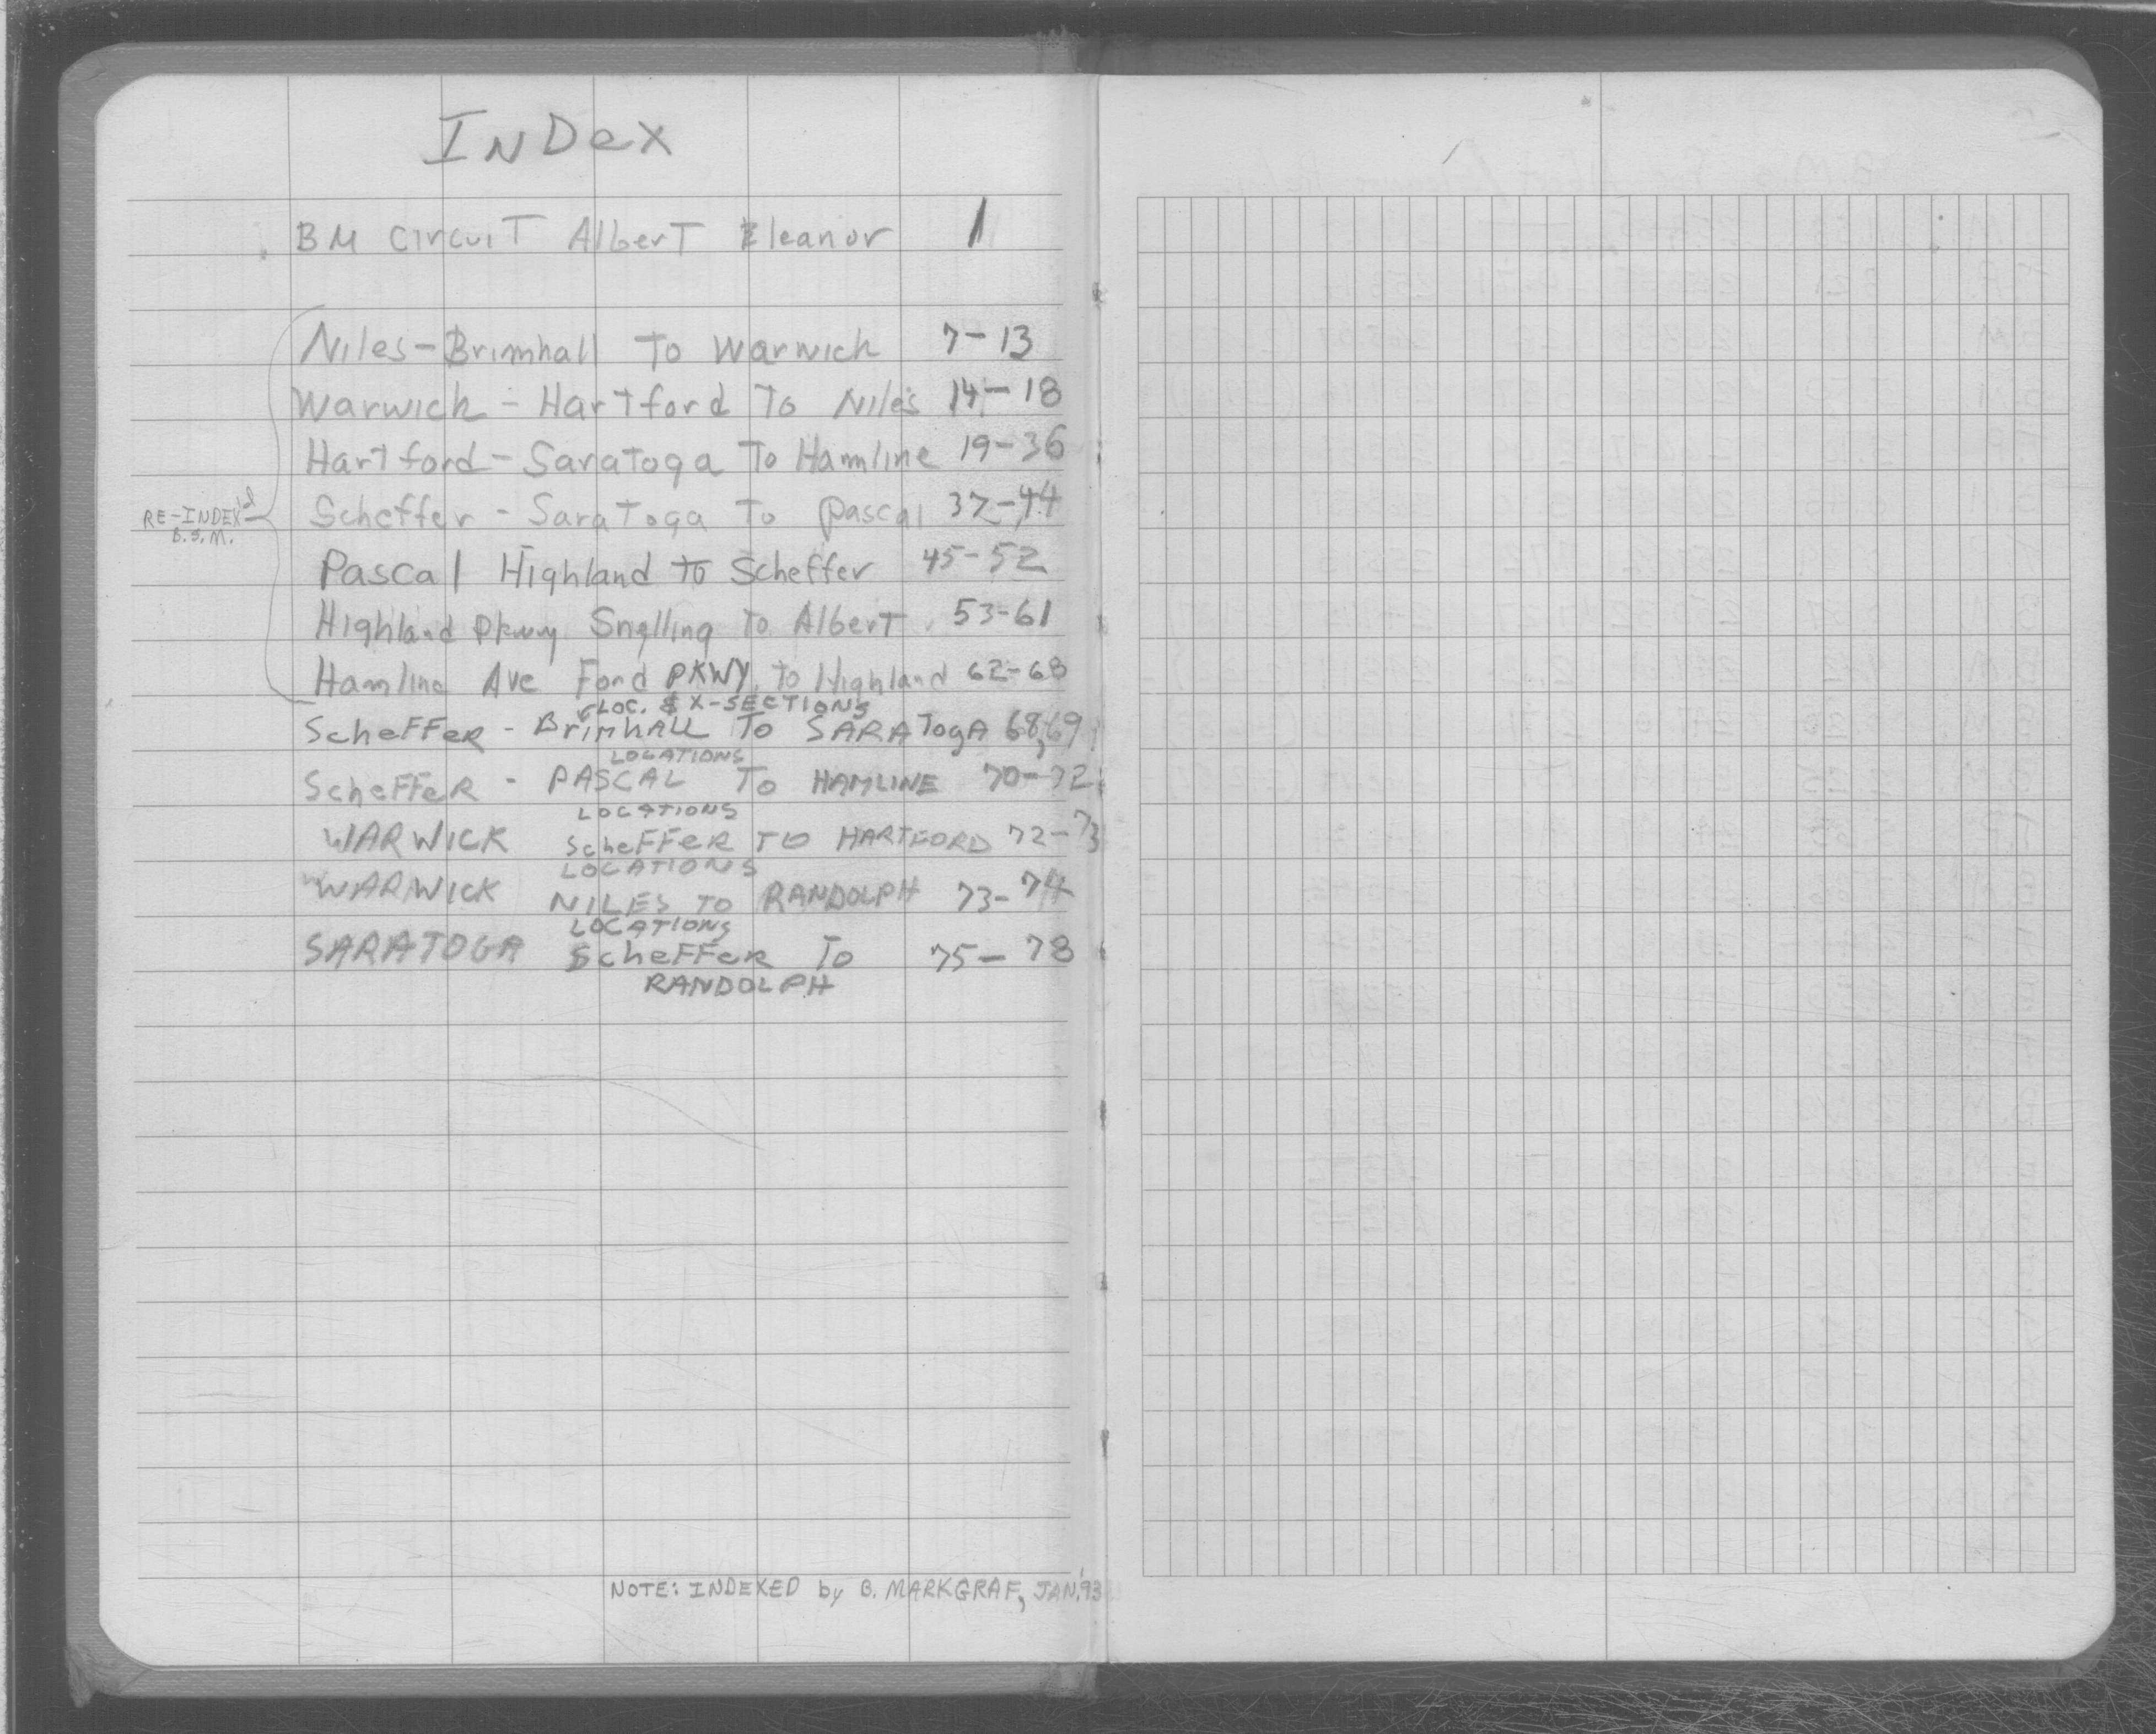 InDex
BM CircuiT AlberT Eleanor 1
Niles-Brimhall To Warwich 7-13
Warwich - Hartford To Niles 14-18
Hartford-Saratoga To Hamline 19-36
RE-INDEX'd
B.S.M.
Scheffer - Saratoga To Pascal 37-44
Pascal Highland to Scheffer 45-52
Highland Pkwy Snelling To Albert 53-61
Hamline Ave Ford PKWY. to Highland 62-68
LOC. & X-SECTIONS
ScheFFeR - BrimhALL To SARAToga 68,69
LOCATIONS
ScheFFeR - PASCAL To HAMLINE 70-72
LOCATIONS
WARWICK ScheFFeR TO HARTFORD 72-73
LOCATIONS
WARWICK NILES TO RANDOLPH 73-74
LOCATIONS
SARATOGA ScheFFeR To 75-78
RANDOLPH
NOTE: INDEXED by B. MARKGRAF, JAN. '93